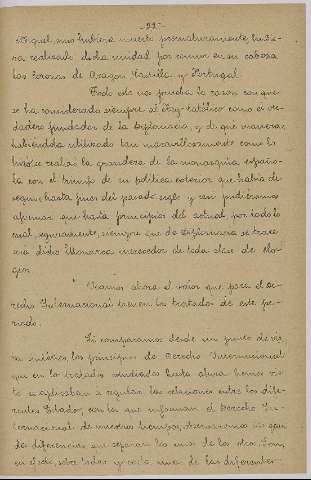 - 22 -
Miguel, no hubiera muerto prematuramente, hubie-
ra realizado dicha unidad por reunir en su cabeza
las coronas de Aragon Castilla y Portugal.
Todo esto nos prueba la razon con que
se ha considerado siempre al Rey-católico como el ver-
dadero fundador de la diplomacia y de qué manera,
habiéndola utilizado tan maravillosamente como lo
hizo, se realzó la grandeza de la monarquia españo-
la con el triunfo de su política exterior que habia de
seguir hasta fines del pasado siglo y aun pudieramos
afirmar que hasta principios del actual, por todo lo
cual, seguramente, siempre que de diplomacia se trate
será dicho Monarca merecedor de toda clase de elo-
gios.
Veamos ahora el valor que para el De-
recho Internacional tienen los tratados de este pe-
riodo.
Si comparamos desde un punto de vis-
ta jurídico los principios de Derecho Internacional
que en los tratados estudiados hasta ahora hemos vis-
to se aplicaban a regular las relaciones entre los dife-
rentes Estados, con los que informan el Derecho In-
ternacional de nuestros tiempos, observaremos las gran-
des diferencias que separan los unos de los otros. Son,
en efecto, sobre todos y cada uno de los diferentes